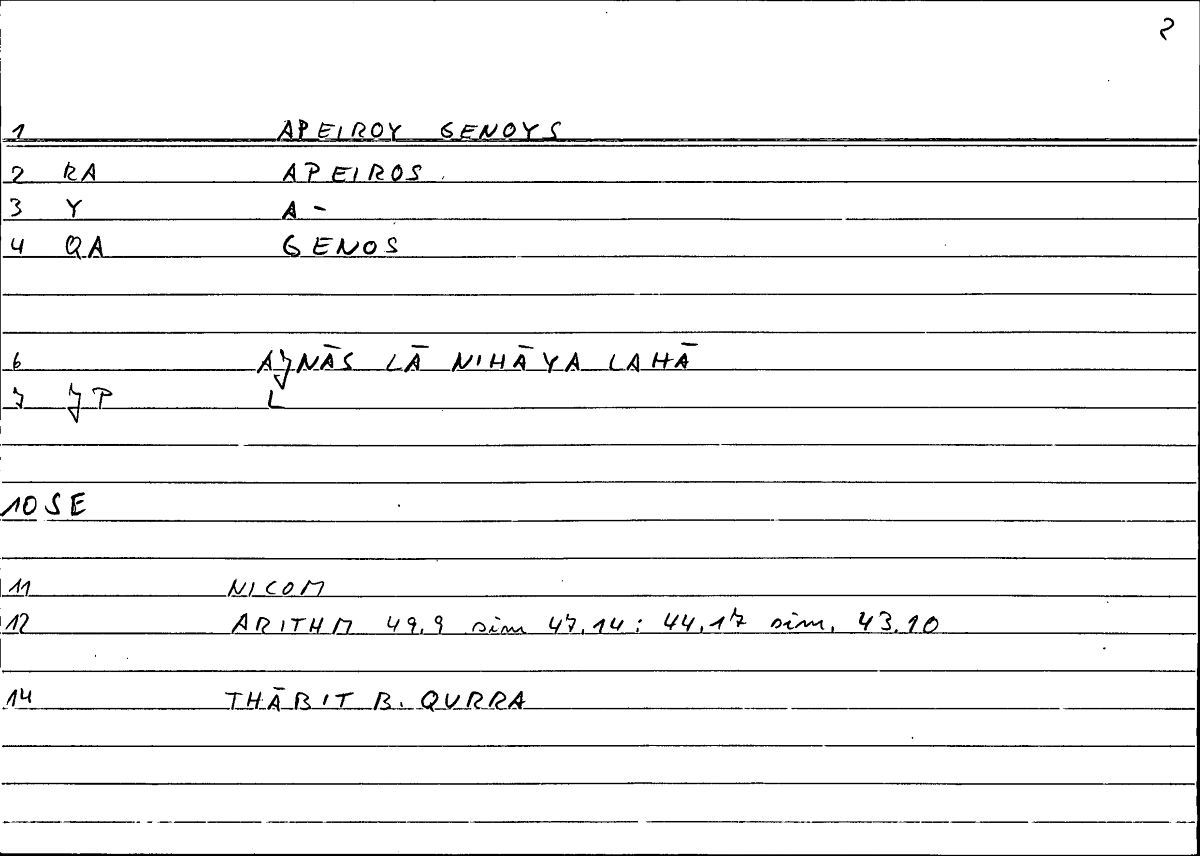 2
1 APEIROY GENOYS
2 RA APEIROS
3 Y A -
4 QA GENOS
6 AJNĀS LĀ NIHĀYA LAHĀ
7 JP L
10 SE
11 NICOM
12 ARITHM 49.9 sim 47.14 : 44.17 sim. 43.10
14 THĀBIT B. QURRA